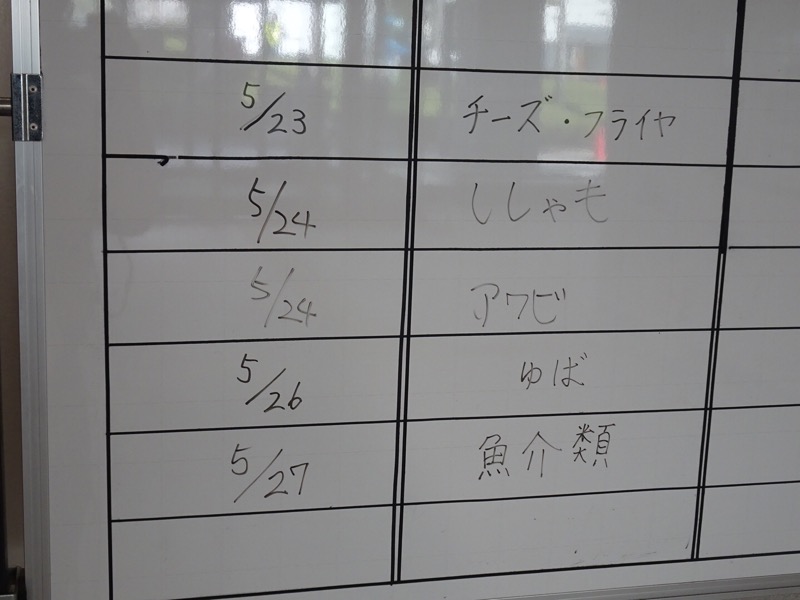 5/23 チーズ・フライヤ
5/24 ししゃも
5/24 アワビ
5/26 ゆば
5/27 魚介類